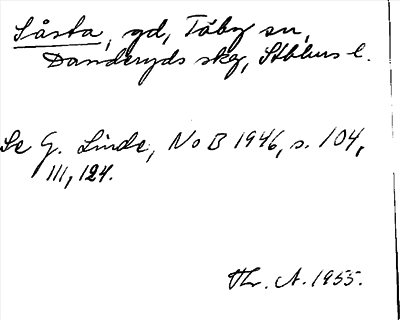 Såsta, gd, Täby sn,
Danderyds skg, Sthlms l.
Se G. Linde, NoB 1946, s. 104,
111, 124.
Thr. A. 1955.